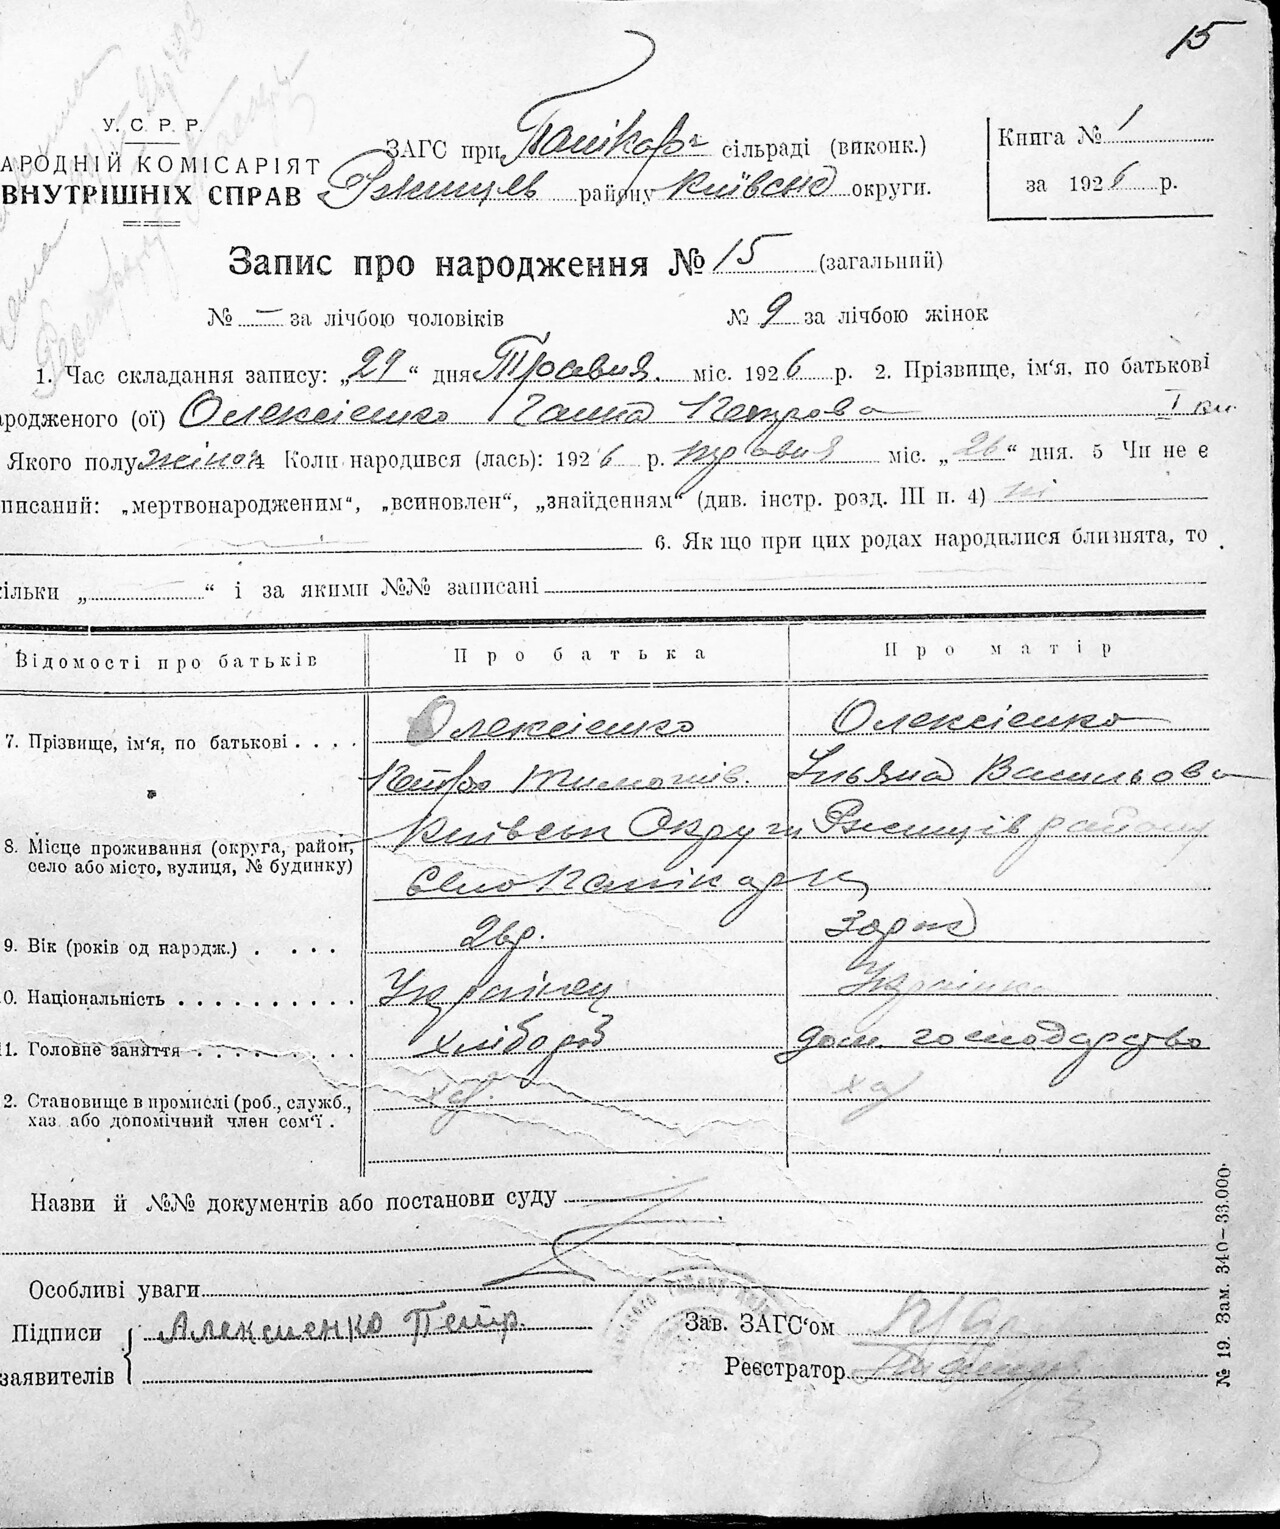 15
У. С. Р. Р.
АРОДНІЙ КОМІСАРІЯТ
ВНУТРІШНІХ СПРАВ
ЗАГС при Панікар сільраді (виконк.)
Ржищев району Київськ округи.
Книга № 1
за 1926 р.
Запис про народження № 15 (загальний)
№ – за лічбою чоловіків № 9 за лічбою жінок
1. Час складання запису: „29“ дня Травня міс. 1926 р. 2. Прізвище, ім'я, по батькові
ародженого (ої) Олексієнко Ганна Петрова
Якого полу жіноч 4 Коли народився (лась): 1926 р. травня міс. „26“ дня. 5 Чи не є
писаний: „мертвонародженим“, „всиновлен“, „знайденням“ (див. інстр. розд. III п. 4) ні
6. Якщо при цих родах народилися близнята, то
ільки „ “ і за якими №№ записані
Відомості про батьків Про батька Про матір
7. Прізвище, ім'я, по батькові . . . . Олексієнко Олексієнко
Петро Тимошів. Ульяна Васильова
8. Місце проживання (округа, район, село або місто, вулиця, № будинку) Київськ Округи Ржищів району
Село Панікарч
9. Вік (років од народж.) . . . . 26р. 30рок
0. Національність . . . . . . . . . . Українец Українка
11. Головне заняття . . . . . . . . хлібороб дом. господарство
2. Становище в промислі (роб., служб., хаз. або допомічний член сем'ї . хаз. хаз
Назви й №№ документів або постанови суду
Особливі уваги
Підписи Алексиенко Петр. Зав. ЗАГС'ом
заявителів Реєстратор
№ 19. Зам. 340–33.000.